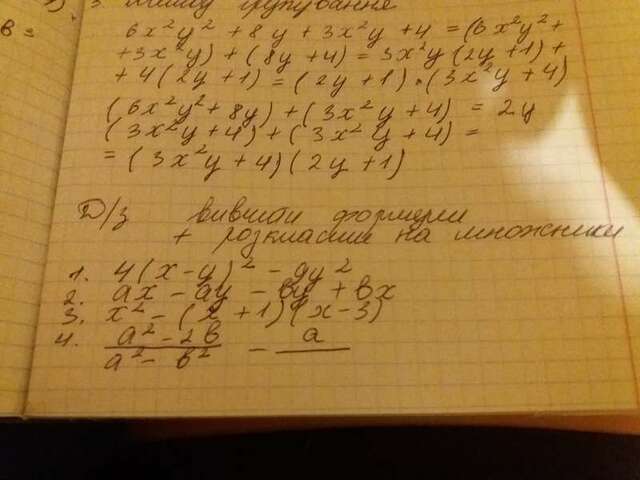 групування
6x²y² + 8y + 3x²y + 4 = (6x²y² +
+ 3x²y) + (8y + 4) = 3x²y (2y + 1) +
+ 4 (2y + 1) = (2y + 1) · (3x²y + 4)
(6x²y² + 8y) + (3x²y + 4) = 2y
(3x²y + 4) + (3x²y + 4) =
= (3x²y + 4)(2y + 1)
Д/з вивчити формули
+ розкласти на множники
1. 4(x-y)² - 9y²
2. ax - ay - by + bx
3. x² - (x + 1)(x - 3)
4. a² - 2b / a² - b² - a /